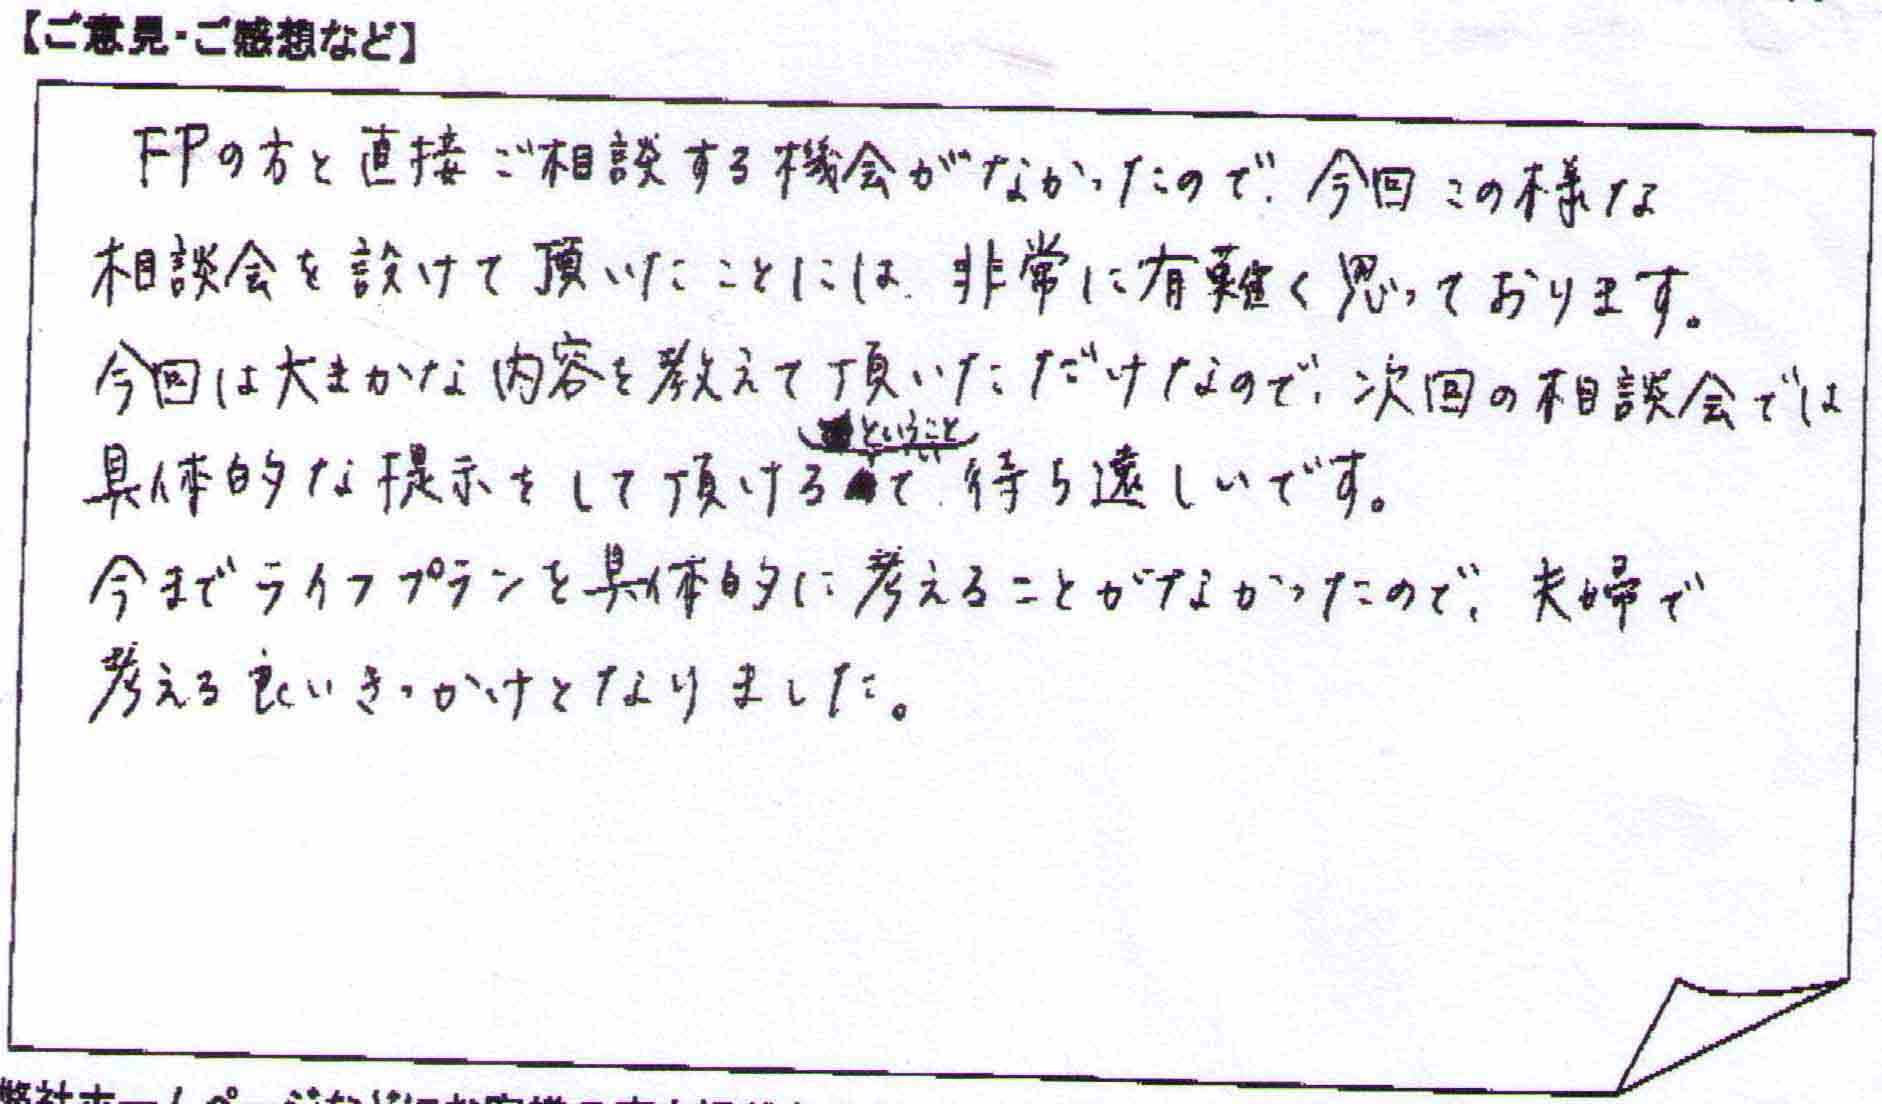 【ご意見・ご感想など】
FPの方と直接ご相談する機会がなかったので、今回この様な
相談会を設けて頂いたことには、非常に有難く思っております。
今回は大まかな内容を教えて頂いただけなので、次回の相談会では
ということ
具体的な提示をして頂けるで、待ち遠しいです。
今までライフプランを具体的に考えることがなかったので、夫婦で
考える良いきっかけとなりました。
弊社ホームページなどに